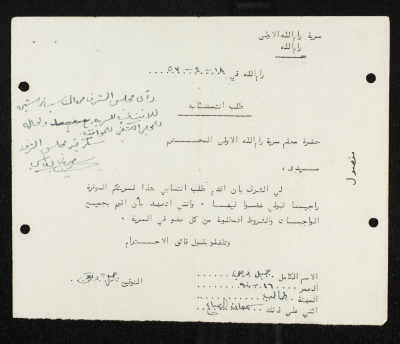 سرية رام الله الاولى
رام الله
رام الله في ١٨ - ٤ - ٥٣
طلب انتساب
حضرة معلم سرية رام الله الاولى المحترم
سيدي ،
لي الشرف بان اقدم طلب انتسابي هذا لسريتكم الموقرة
راجيا قبولي عضوا فيها . وانني اتعهد بأن اقوم بجميع
الواجبات والشروط المطلوبة من كل عضو في السرية .
وتفضلوا بقبول فائق الاحترام
الاسم الكامل : جميل
التوقيع جميل
العمر : ١٦ سنة
المهنة : طالب
اثني على ذلك :
رأى مجلس الشرف من المناسبة
للانتساب للسرية
سكرتير مجلس الشرف
مفصول